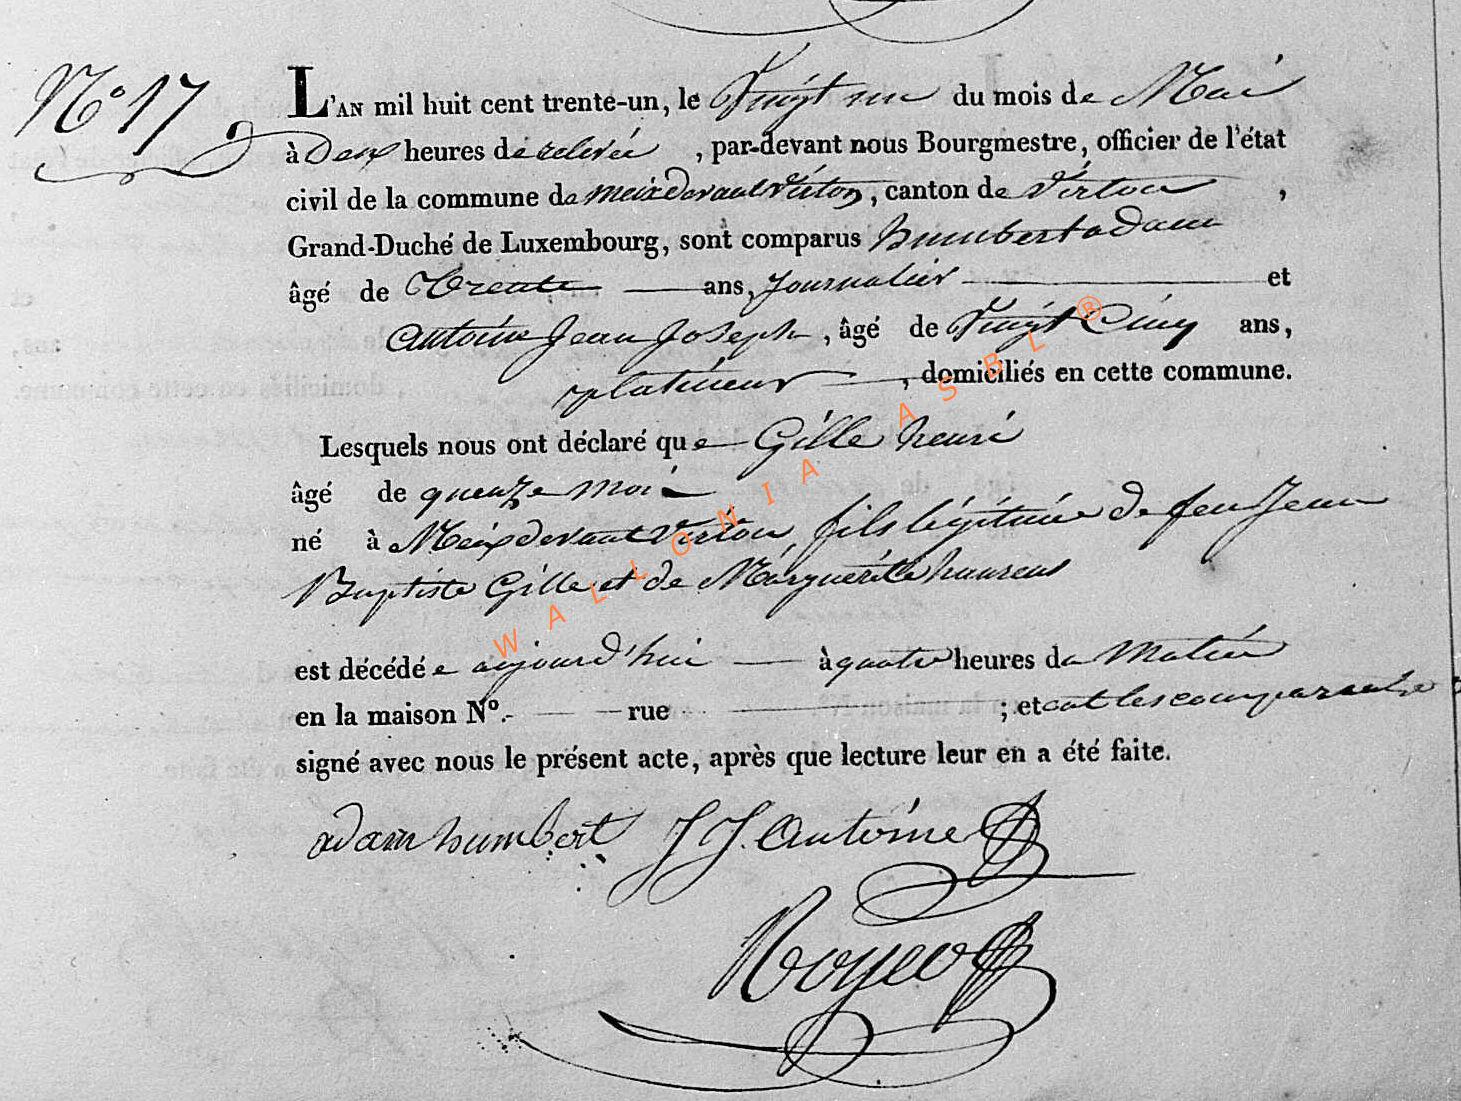 N° 17
L'AN mil huit cent trente-un, le Vingt un du mois de Mai
à Deux heures de relevée, par-devant nous Bourgmestre, officier de l'état
civil de la commune de meixdevant Virton, canton de Virton,
Grand-Duché de Luxembourg, sont comparus humbert adam
âgé de Trente ans, Journalier et
antoine Jean Joseph, âgé de Vingt Cinq ans,
platineur, domiciliés en cette commune.
Lesquels nous ont déclaré que Gille henri
âgé de quenze moi
né à Meixdevant Virton fils légitime de feu Jean
Baptiste Gille et de Margueritte
est décédé aujourd'hui à quatre heures du Matin
en la maison N°. rue ; et ont les comparants
signé avec nous le présent acte, après que lecture leur en a été faite.
adam humbert J J. Antoine
WALLONIA ASBL ®